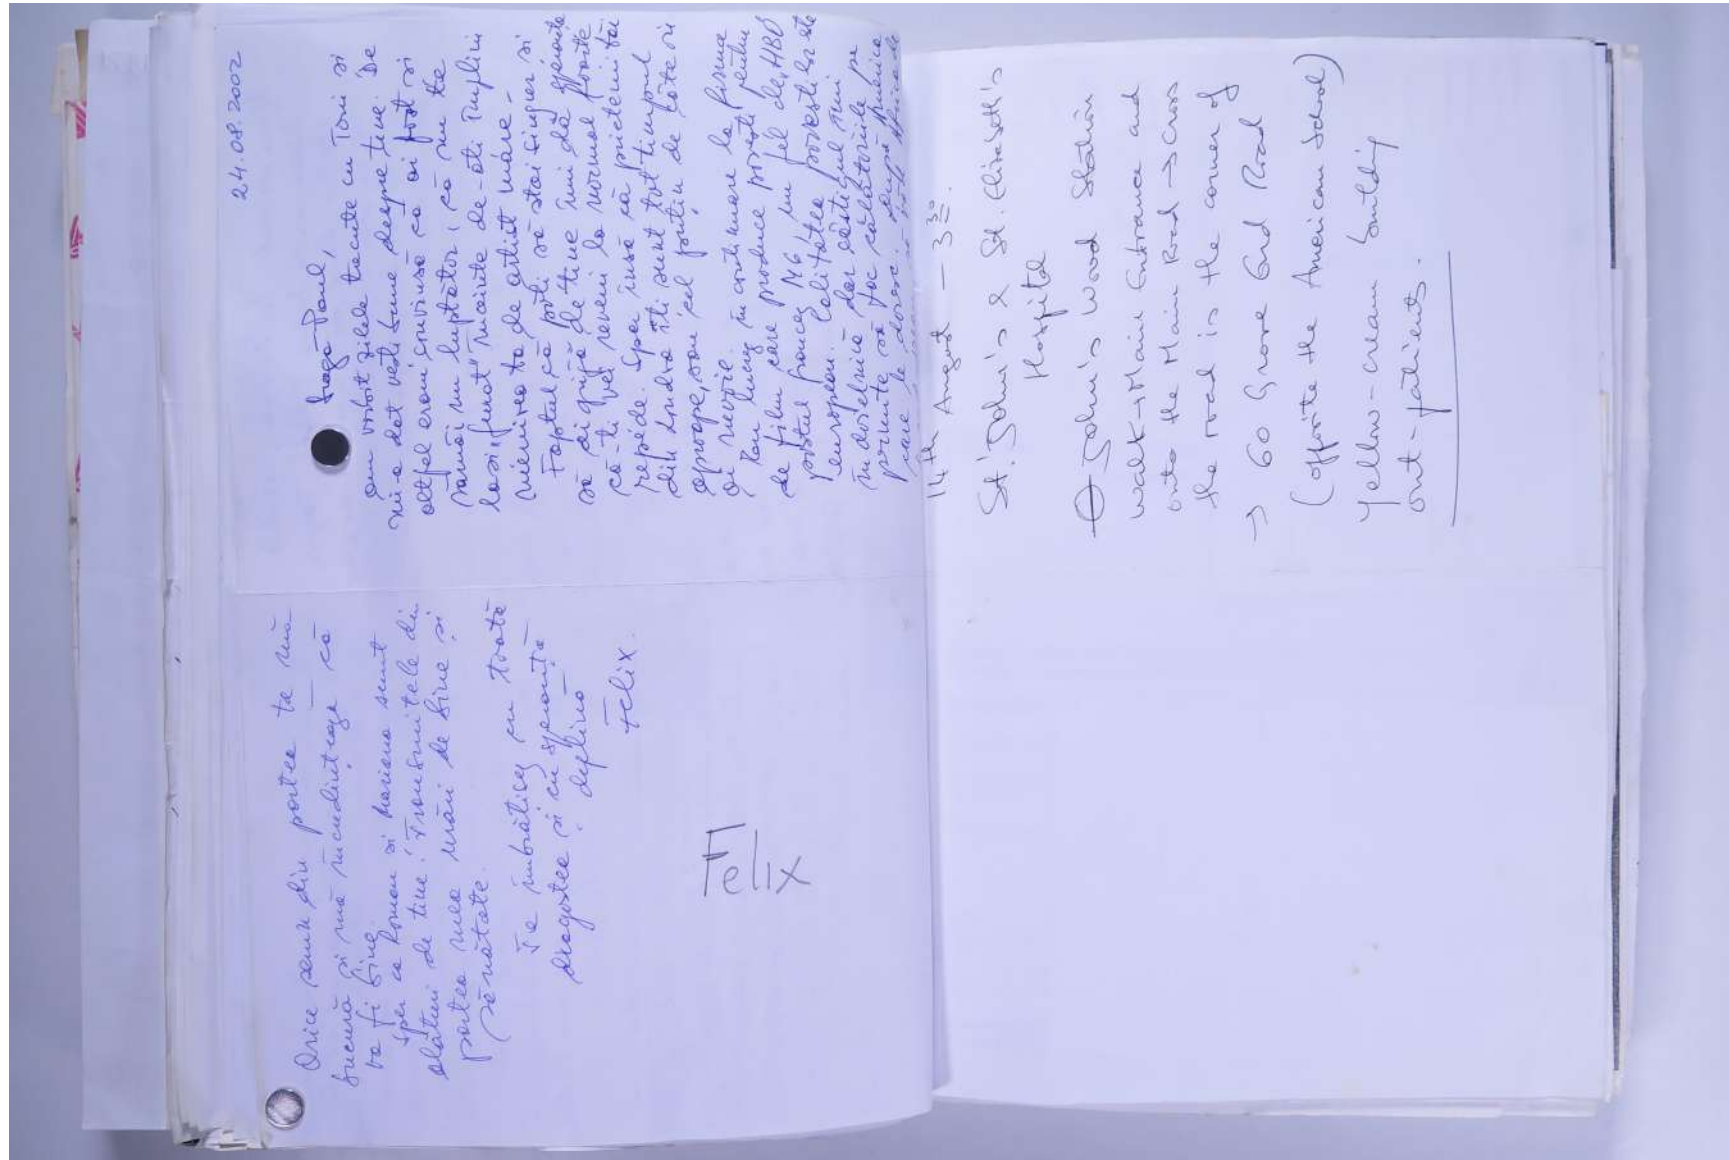 24.08.2002
Dragă Paul,
am vorbit zilele trecute cu Toni și
mi-a dat vești bune despre tine. De
altfel eram convinsă că ai fost și
rămâi un luptător, că nu te
lași până nu
menirea ta de artist mare.
Faptul că poți să stai singur și
să ai grijă de tine îmi dă speranța
că-ți vei reveni la normal foarte
repede. Sper însă că prietenii tăi
din Londra îți sunt tot timpul
aproape, sau cel puțin de câte ori
ai nevoie.
Eu lucrez în continuare la firma
de film care produce povești pentru
postul francez M6 un fel de HBO
european. Calitatea poveștilor este
îndoielnică dar câștigul îmi
permite să fac călătoriile pe
care le doresc.
Orice semn din partea ta mă
bucură și mă încredințează că
va fi bine.
Sper ca Roman și Mariana sunt
alături de tine. Transmitele din
partea mea urări de bine și
sănătate.
Te îmbrățișez cu toată
dragostea și cu speranță
deplină
Felix.
Felix
14th August – 3 30.
St. John's & St. Elizabeth's
Hospital
St. John's Wood Station
walk → Main Entrance and
onto the Main Road → Cross
the road is the corner of
→ 60 Grove End Road
(opposite the American School)
Yellow-cream building
out-patients.